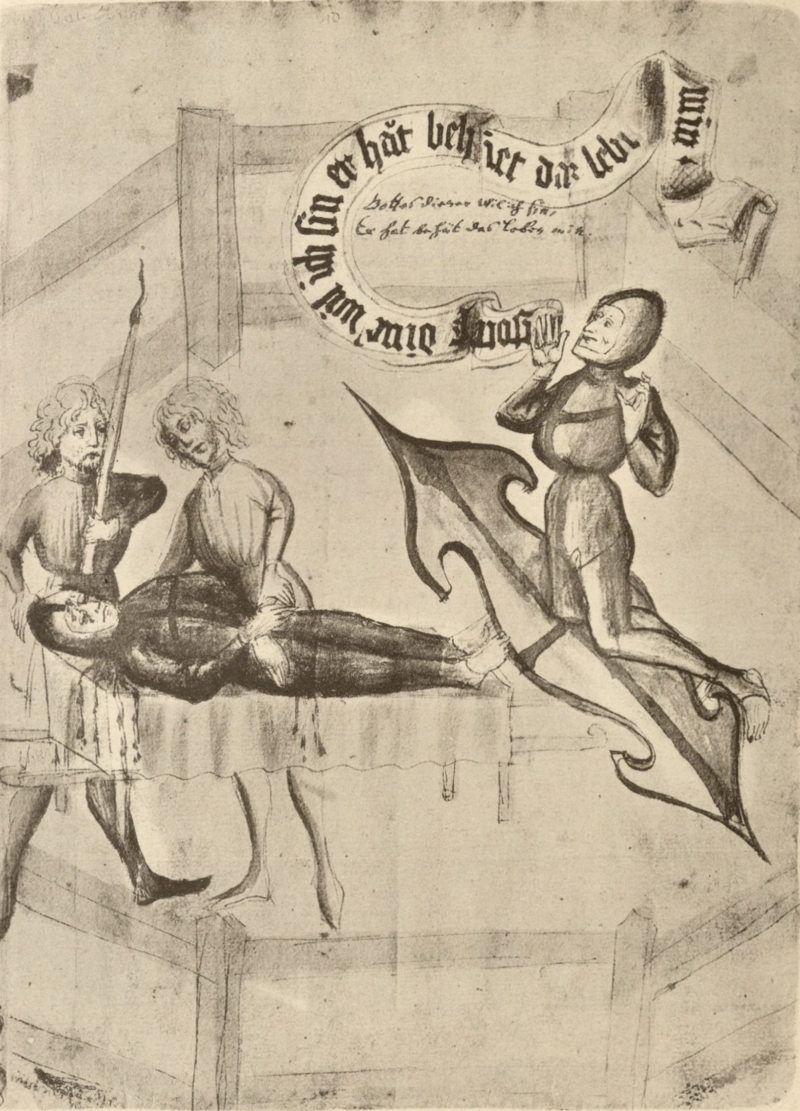 diner wil ich sin er hăt behiet daz lebi min
Gottes diener wil ich sin,
Er hat behüt das leben min.